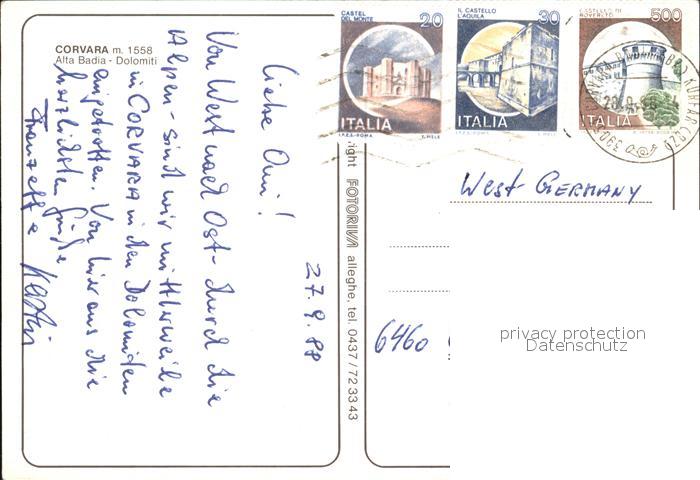 CORVARA m. 1558
Alta Badia - Dolomiti
27.9.88
Liebe Omi!
Von West nach Ost - durch die
Alpen - sind wir mittlerweile
in CORVARA in den Dolomiten
eingetroffen. Von hier aus die
herzlichsten Grüße
Franzeff +
right FOTORIVA alleghe, tel. 0437/723343
CASTEL
DEL MONTE
20
ITALIA
I.P.Z.S.-ROMA
E. MELE
IL CASTELLO
L'AQUILA
30
ITALIA
I.P.Z.S.-ROMA
E. MELE
CASTELLO DI
ROVERETO
500
ITALIA
West-GERMANY
6460
privacy protection
Datenschutz